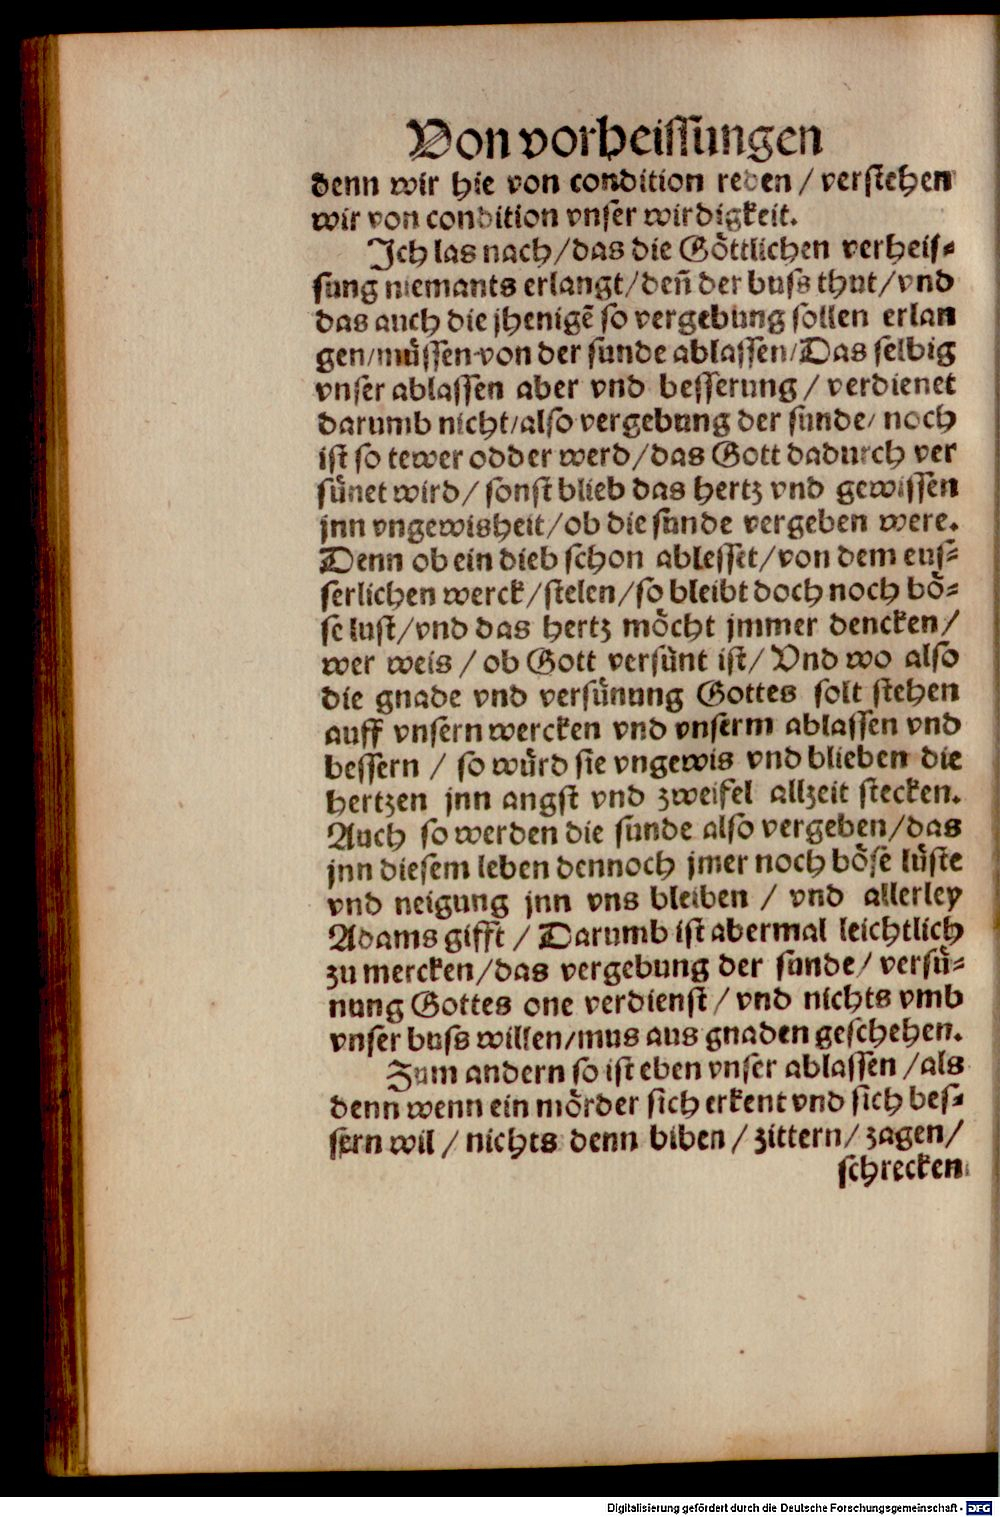 Von vorheissungen
denn wir hie von condition reden / verstehen
wir von condition vnser wirdigkeit.
Ich las nach / das die Göttlichen verheis-
sung niemants erlangt / deñ der buss thut / vnd
das auch die jhenigẽ so vergebung sollen erlan
gen / müssen von der sunde ablassen / Das selbig
vnser ablassen aber vnd besserung / verdienet
darumb nicht / also vergebung der sunde / noch
ist so tewer odder werd / das Gott dadurch ver
sünet wird / sonst blieb das hertz vnd gewissen
jnn vngewisheit / ob die sunde vergeben were.
Denn ob ein dieb schon ablesset / von dem eus-
serlichen werck / stelen / so bleibt doch noch bö-
se lust / vnd das hertz möcht jmmer dencken /
wer weis / ob Gott versünt ist / Vnd wo also
die gnade vnd versünung Gottes solt stehen
auff vnsern wercken vnd vnserm ablassen vnd
bessern / so würd sie vngewis vnd blieben die
hertzen jnn angst vnd zweifel allzeit stecken.
Auch so werden die sunde also vergeben / das
jnn diesem leben dennoch jmer noch böse lüste
vnd neigung jnn vns bleiben / vnd allerley
Adams gifft / Darumb ist abermal leichtlich
zu mercken / das vergebung der sunde / versü-
nung Gottes one verdienst / vnd nichts vmb
vnser buss willen / mus aus gnaden geschehen.
Zum andern so ist eben vnser ablassen / als
denn wenn ein mörder sich erkent vnd sich bes-
sern wil / nichts denn biben / zittern / zagen /
schrecken
Digitalisierung gefördert durch die Deutsche Forschungsgemeinschaft - DFG